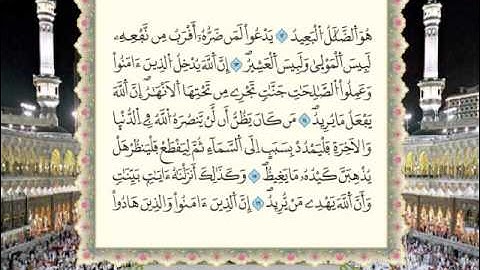 هُوَ ٱلضَّلَٰلُ ٱلْبَعِيدُ ۝١٢ يَدْعُوا۟ لَمَن ضَرُّهُۥٓ أَقْرَبُ مِن نَّفْعِهِۦ
لَبِئْسَ ٱلْمَوْلَىٰ وَلَبِئْسَ ٱلْعَشِيرُ ۝١٣ إِنَّ ٱللَّهَ يُدْخِلُ ٱلَّذِينَ ءَامَنُوا۟
وَعَمِلُوا۟ ٱلصَّٰلِحَٰتِ جَنَّٰتٍ تَجْرِى مِن تَحْتِهَا ٱلْأَنْهَٰرُ إِنَّ ٱللَّهَ
يَفْعَلُ مَا يُرِيدُ ۝١٤ مَن كَانَ يَظُنُّ أَن لَّن يَنصُرَهُ ٱللَّهُ فِى ٱلدُّنْيَا
وَٱلْءَاخِرَةِ فَلْيَمْدُدْ بِسَبَبٍ إِلَى ٱلسَّمَآءِ ثُمَّ لْيَقْطَعْ فَلْيَنظُرْ هَلْ
يُذْهِبَنَّ كَيْدُهُۥ مَا يَغِيظُ ۝١٥ وَكَذَٰلِكَ أَنزَلْنَٰهُ ءَايَٰتٍۭ بَيِّنَٰتٍ
وَأَنَّ ٱللَّهَ يَهْدِى مَن يُرِيدُ ۝١٦ إِنَّ ٱلَّذِينَ ءَامَنُوا۟ وَٱلَّذِينَ هَادُوا۟